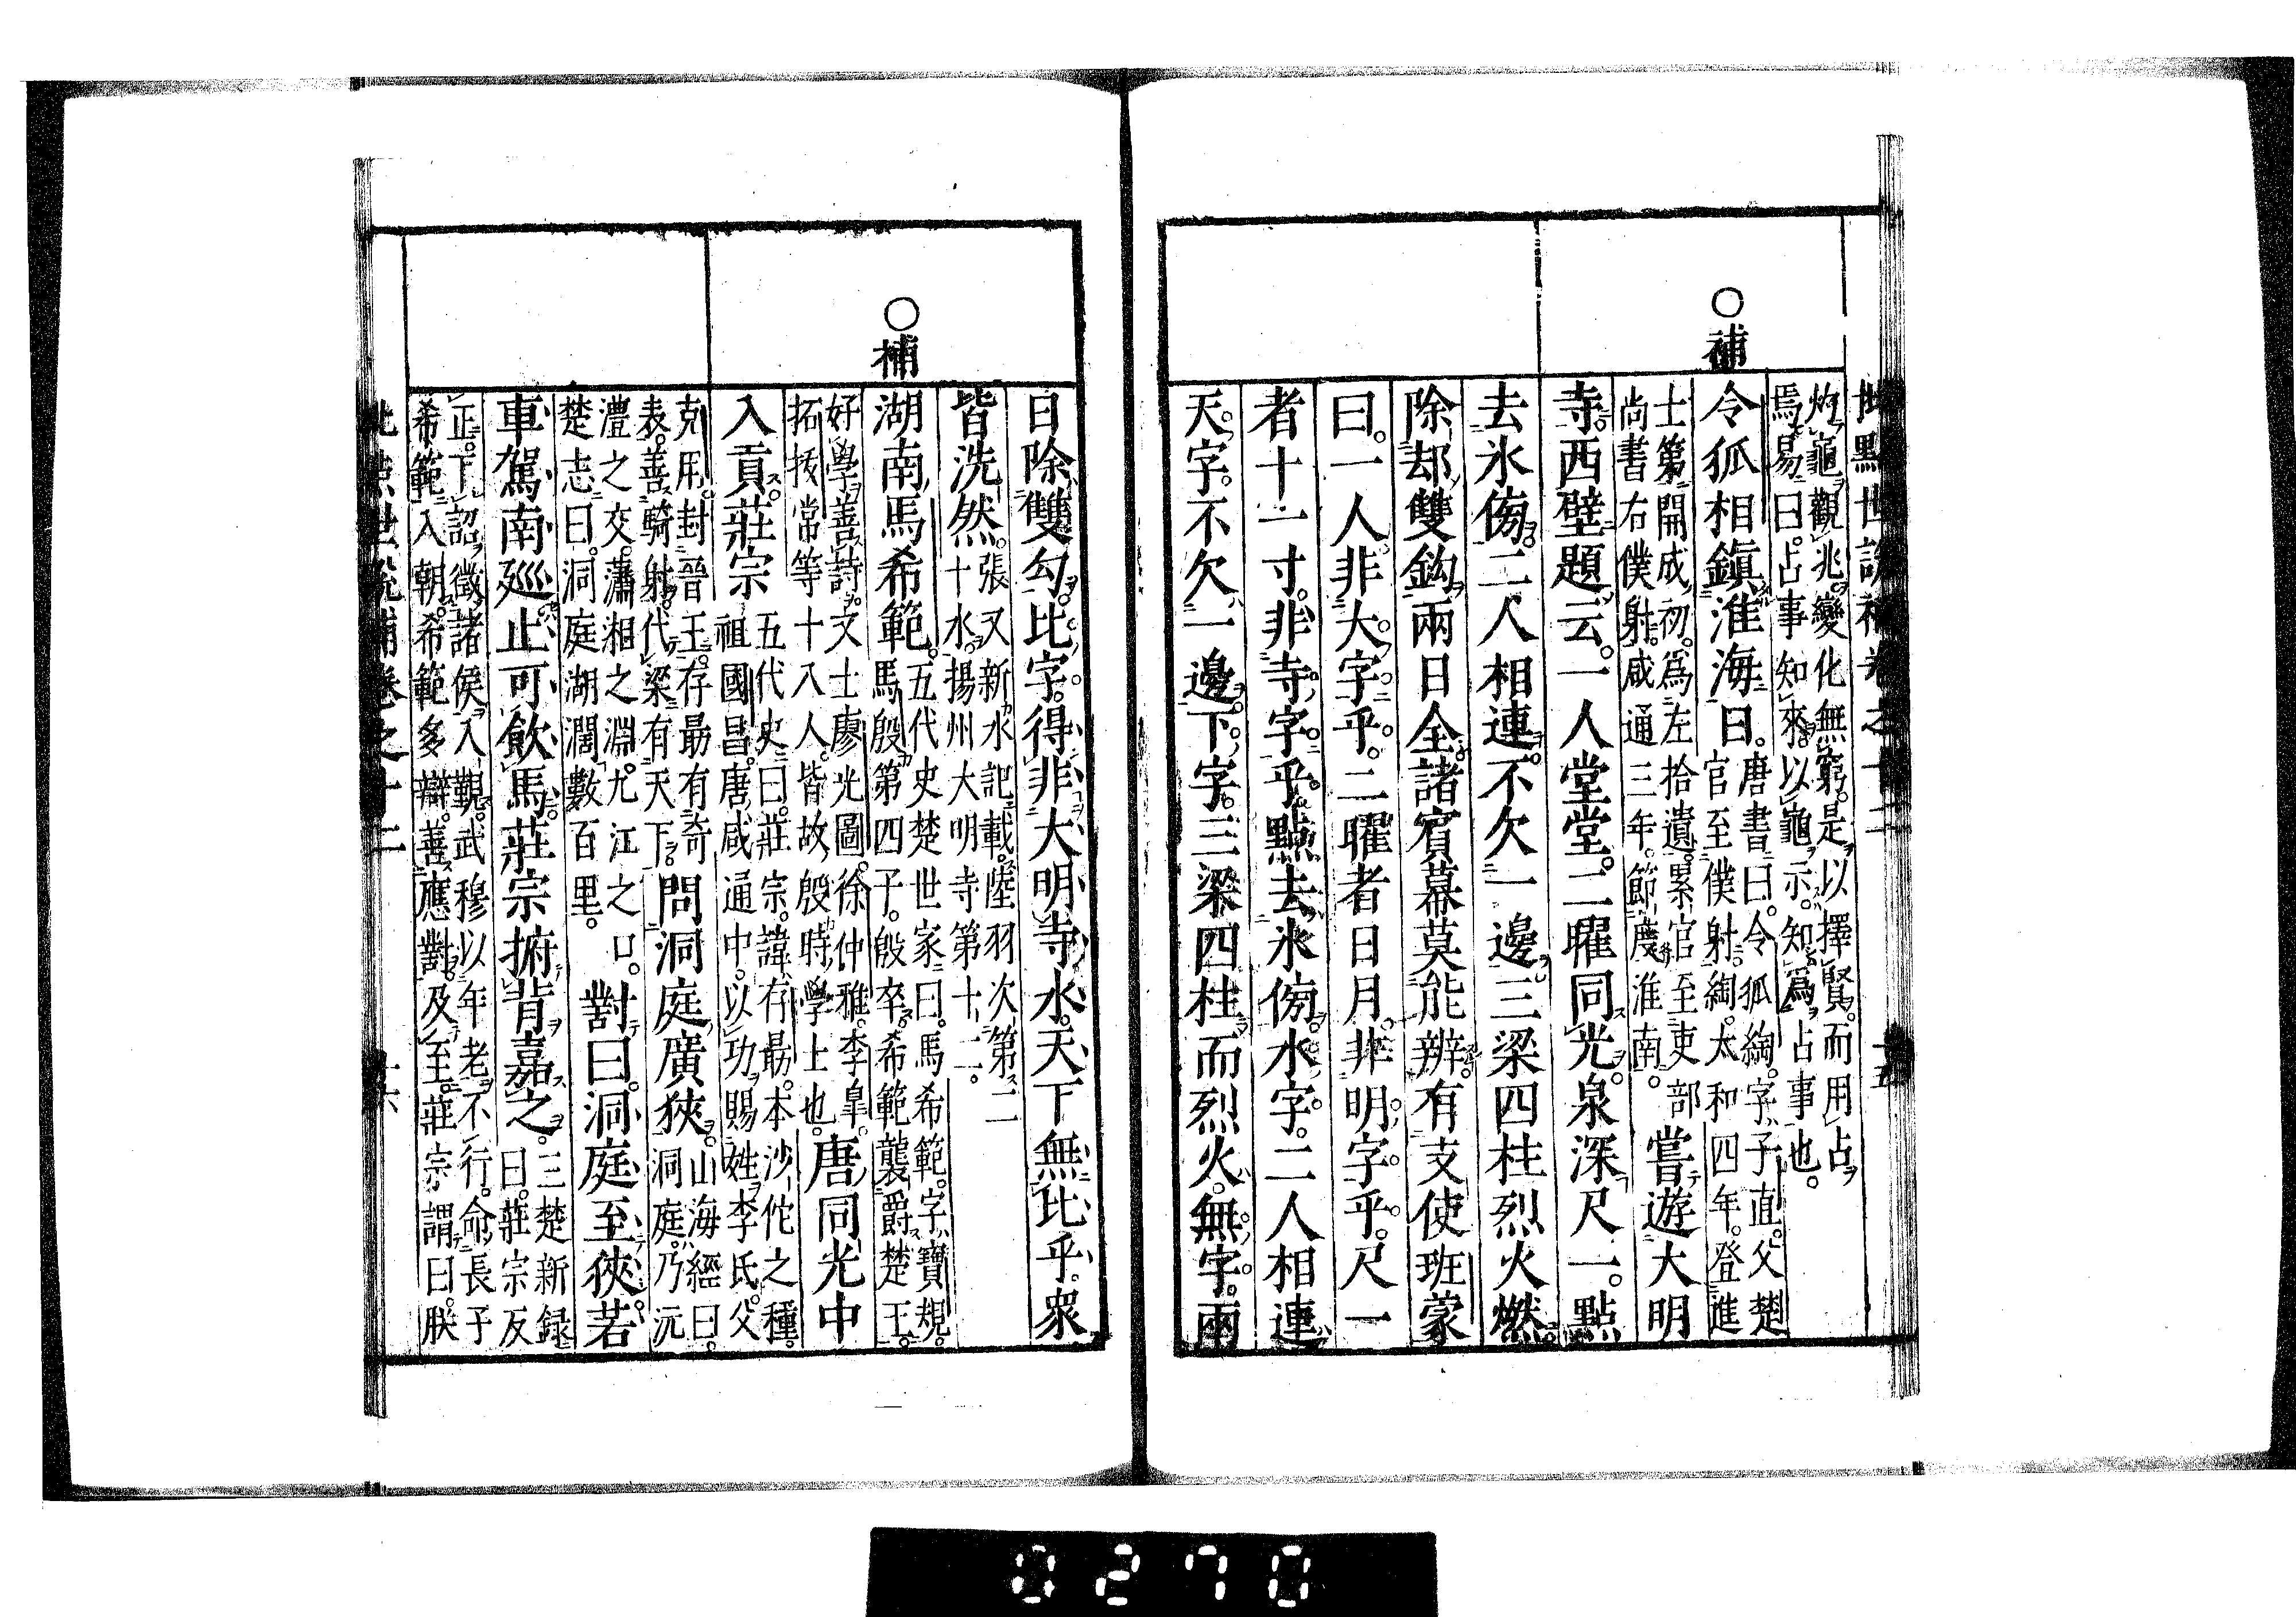 ○補
炮龜觀兆變化無窮。是以擇賢。而用占
焉。易曰。占事知來。以龜示。知為占事也。
令狐相鎮淮海日。唐書曰。令狐綯。字子直。父楚
官至僕射。綯。太和四年。登進
士第。開成初。為左拾遺。累官至吏部
尚書右僕射。咸通三年。節度淮南。嘗遊大明
寺。西壁題云。一人堂堂。二曜同光。泉深尺一。點
去氷傍。二人相連。不欠一邊。三梁四柱烈火燃。
除却雙鈎兩日全。諸賓幕莫能辨。有支使班蒙
曰。一人非大字乎。二曜者日月。非明字乎。尺一
者十一寸。非寺字乎。點去氷傍。水字。二人相連
天字。不欠一邊。下字。三梁四柱而烈火。無字。兩
○補
日除雙勾。比字。得非大明寺水。天下無比乎。衆
皆洗然。張又新水記。載陸羽次第二
十水。揚州大明寺第十二。
湖南馬希範。五代史楚世家曰。馬希範。字寶規。
馬殷第四子。殷卒。希範襲爵楚王。
好學善詩。文士廖光圖。徐仲雅。李皐。
拓拔常等十八人。皆故殷時學士也。唐同光中
入貢。莊宗五代史曰。莊宗。諱存勗。本沙佗之種。
祖國昌。唐咸通中。以功賜姓李氏。父
克用。封晉王。存勗有奇
表。善騎射。代梁有天下。問洞庭廣狹。山海經曰。
洞庭。乃沅
澧之交。瀟湘之淵。尤江之口。
楚志曰。洞庭湖濶數百里。對曰。洞庭至狹。若
車駕南廵。止可飲馬。莊宗拊背嘉之。三楚新録
曰。莊宗反
正。下詔徵諸侯入覲。武穆以年老不行。命長子
希範入朝。希範多辯。善應對。及至。莊宗謂曰。朕